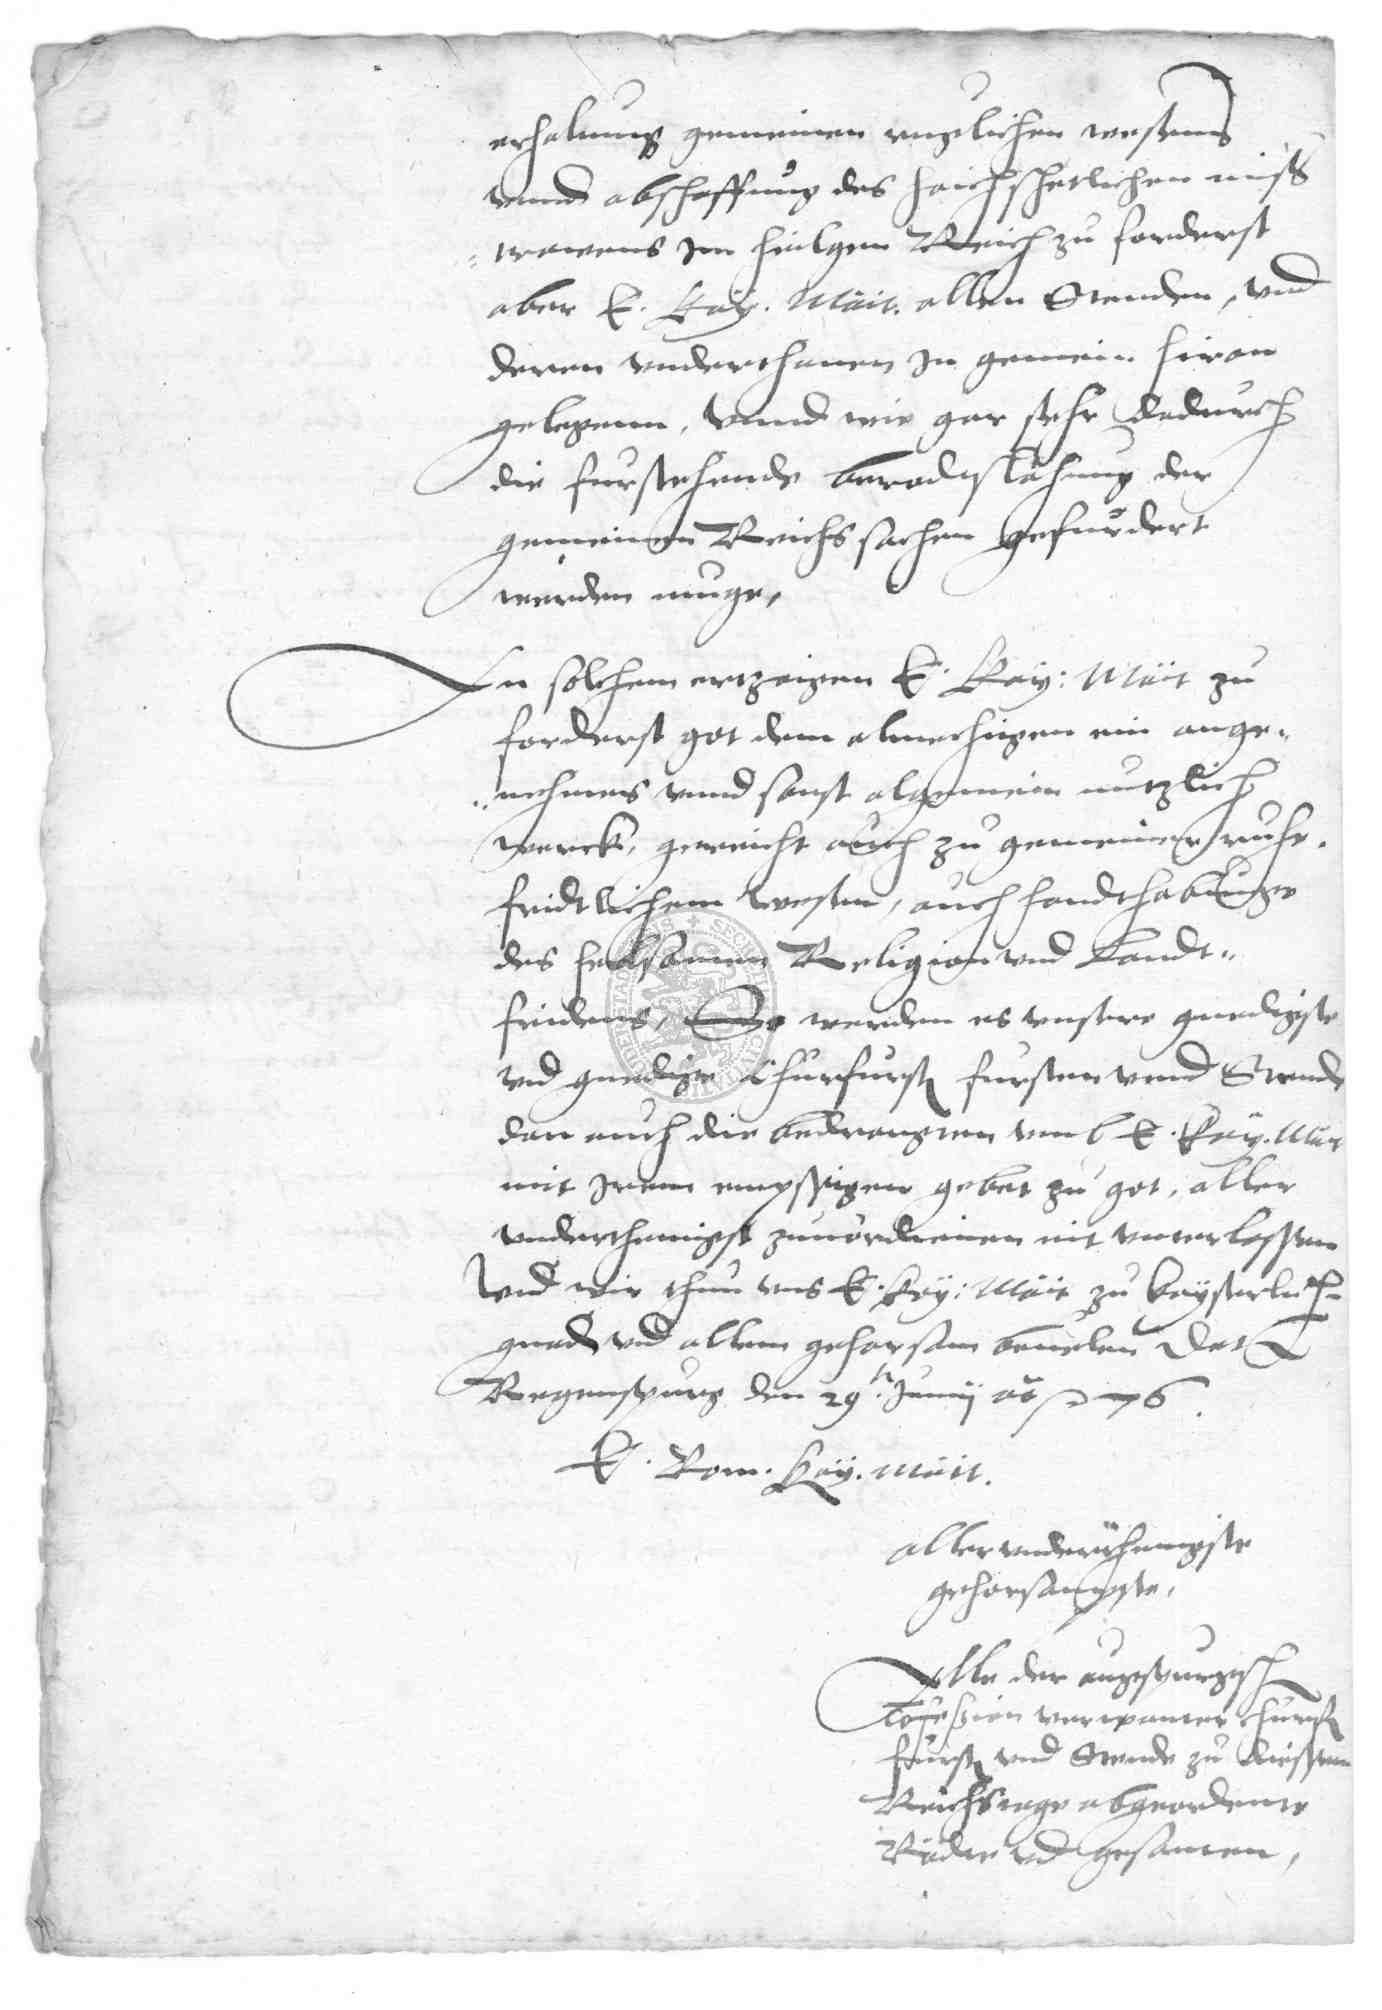 erhaltung gemeinen nuzlichen wesenns
vnnd abschaffung des hoichschetlichen miß=
=trawens im heilgen Reich zu forderst
aber E. Kay. Mait. allen Stenden, vnd
deren vnderthanen in gemein hiran
gelegenn, vnnd wie gar sehr dadurch
die furstehende beradtschlahung der
gemeinen Reichs sachen gefurdert
werden muge,
In solchem ertzeigen E. Kay: Mait zu
forderst got dem almechtigen ein ange=
=nehmes vnnd sonst algemein nutzlich
werck, gereicht auch zu gemeiner ruhe,
fridtlichem wesen, auch handthabunge
des heilsamen Religion vnd Landt=
fridens, So werden es vnsere gnedigste
vnd gnedige Churfurst fursten vnnd Stende
dan auch die bedrangten vmb E. Kay. Mait
mit irem empssigen gebet zu got, aller
vnderthenigst zuuordienen nit vnterlassen
Vnd wir thun vns E. Kay: Mait zu kayserlich
gnad vnd allem gehorsam beuelen Dat
Regenspurg den 29 t. Junij ao 76.
E. Rom. Kay. Mait.
aller vnderthenigste
gehorsampste,
Alle der augspurgisch
Confession verwanter Churf
furst vnd Stende zu diessem
Reichstage abgeordente
Räthe vnd gesanten,
SECRET CIVITATIS